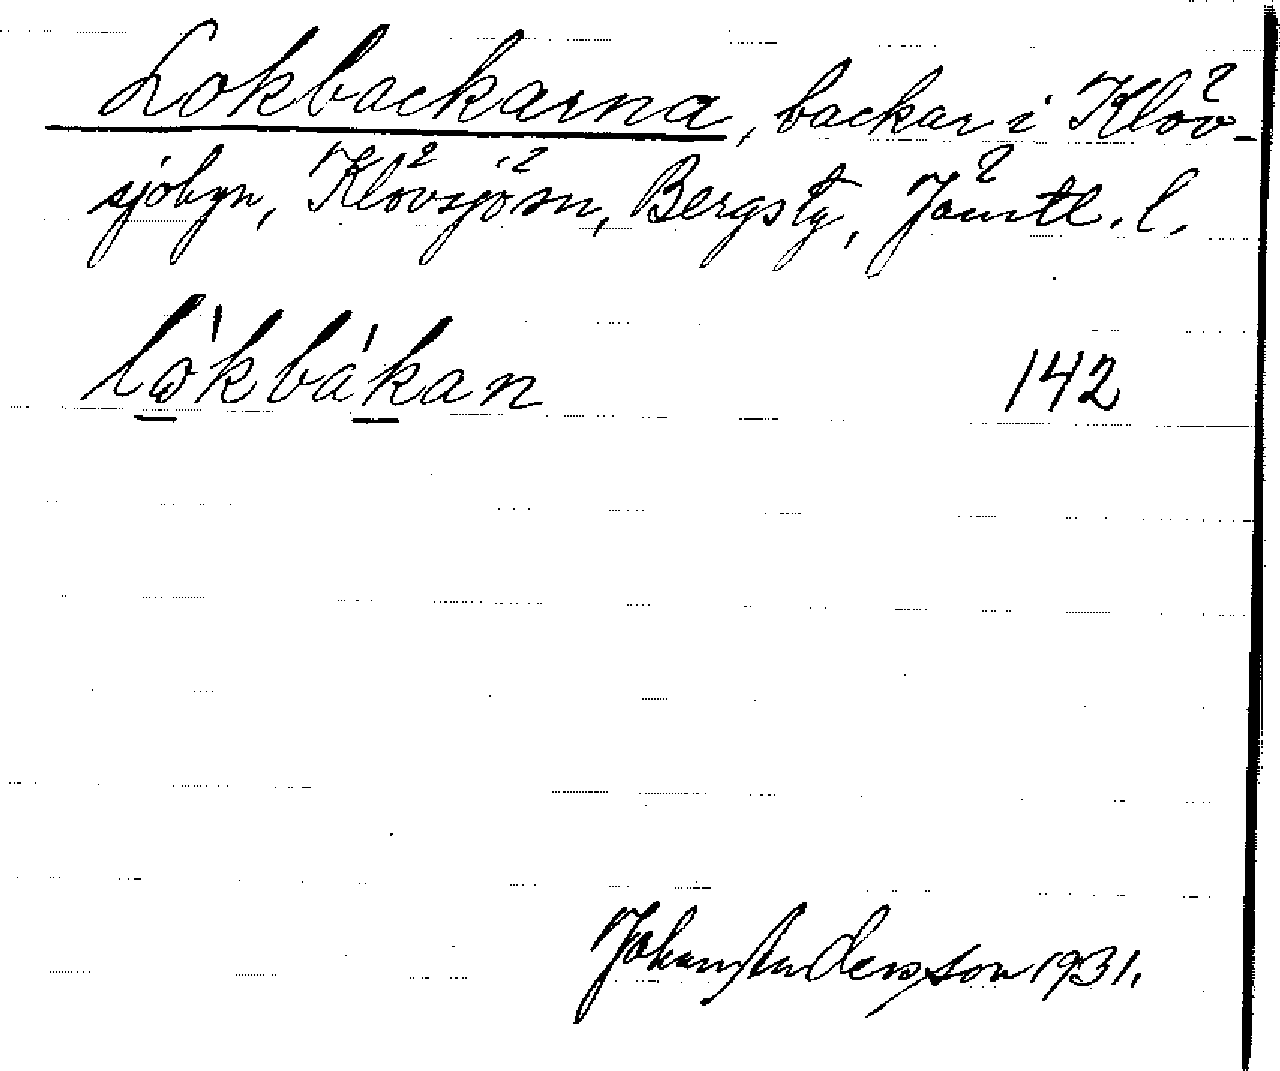 Lokbackarna, backar i Klöv-
sjöbyn, Klövsjö sn, Bergs tg, Jämtl. l.
lòkbákan 142
Johan Andersson 1931.